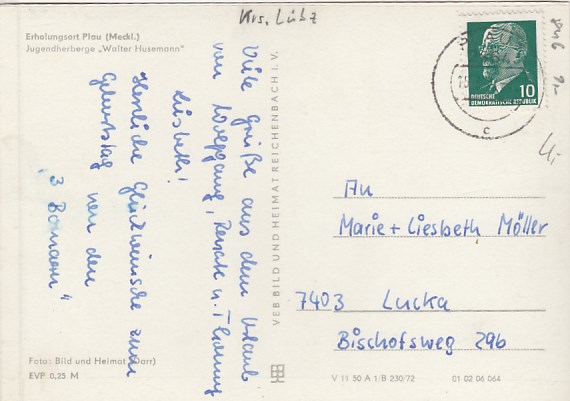 Krs. Lübz
Erholungsort Plau (Meckl.)
Jugendherberge „Walter Husemann"
Viele Grüße aus dem Urlaub
von Wolfgang, Renate u. Thommy
Liesbeth!
Herzliche Glückwünsche zum
Geburtstag von den
„3
VEB BILD UND HEIMAT REICHENBACH I. V.
10
DEUTSCHE
DEMOKRATISCHE REPUBLIK
c
An
Marie + Liesbeth Möller
7403 Lucka
Bischofsweg 29b
Foto: Bild und Heimat (Darr)
EVP 0,25 M
V 11 50 A 1/B 230/72
01 02 06 064